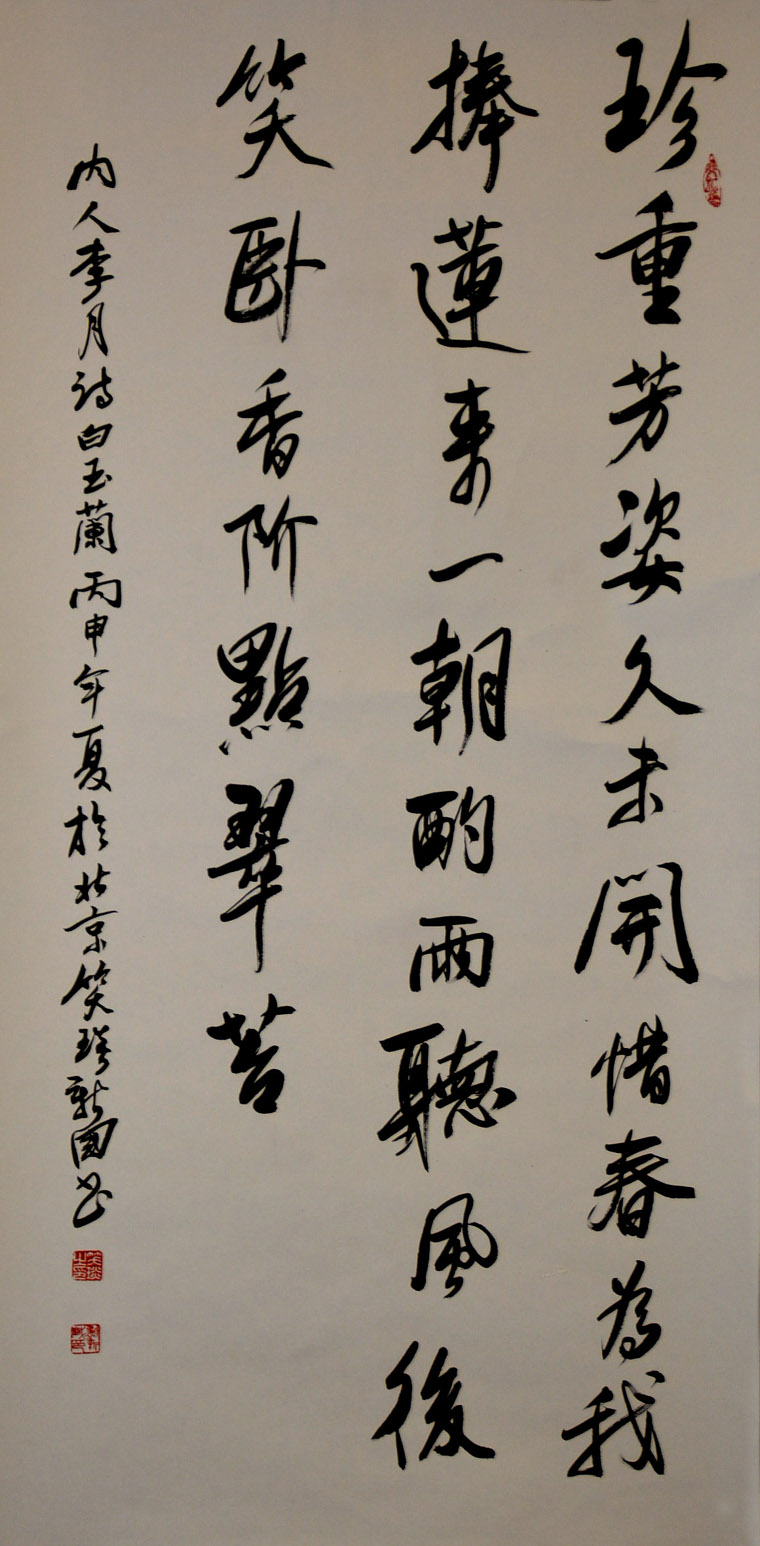 珍重芳姿久未開惜春為我
捧蓮來一朝酌雨聽風後
笑卧香阶點翠苔
内人李月詩白玉蘭丙申年夏於北京笑琰新國书